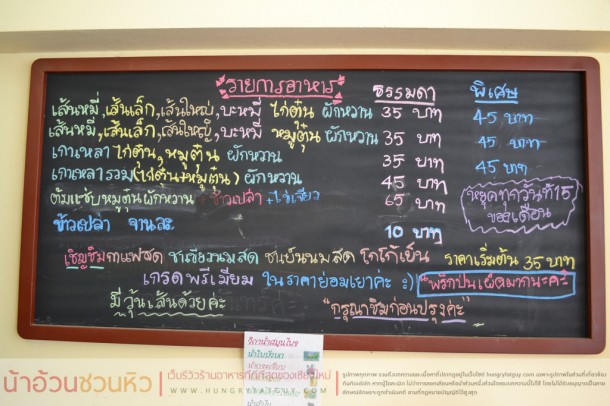 รายการอาหาร ธรรมดา พิเศษ
เส้นหมี่,เส้นเล็ก,เส้นใหญ่,บะหมี่ ไก่ตุ๋น ผักหวาน 35 บาท 45 บาท
เส้นหมี่,เส้นเล็ก,เส้นใหญ่,บะหมี่ หมูตุ๋น ผักหวาน 35 บาท 45 บาท
เกาเหลา ไก่ตุ๋น,หมูตุ๋น ผักหวาน 35 บาท 45 บาท
เกาเหลารวม(ไก่ตุ๋น+หมูตุ๋น) ผักหวาน 45 บาท
ต้มแซ่บหมูตุ๋นผักหวาน + ข้าวเปล่า +ไข่เจียว 65 บาท
หยุดทุกวันที่15
ของเดือน
ข้าวเปล่า จานละ 10 บาท
เชิญชิมกาแฟสด ชาเขียวนมสด ชาเย็นนมสด โกโก้เย็น ราคาเริ่มต้น 35 บาท
เกรดพรีเมี่ยม ในราคาย่อมเยาค่ะ :) "พริกป่นเผ็ดมากนะคะ"
มีวุ้นเส้นด้วยค่ะ "กรุณาชิมก่อนปรุงค่ะ"
น้าอ้วนชวนหิว เว็บรีวิวร้านอาหารที่ดีที่สุดของเชียงใหม่
WWW.HUNGRYFATGUY.COM